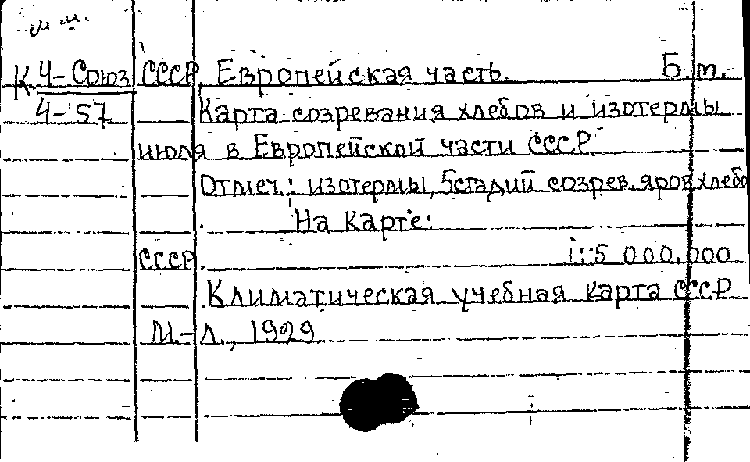 К 4-Союз СССР. Европейская часть. Б.м.
4-57 Карта созревания хлебов и изотермы
июля в Европейской части СССР
Отмеч.: изотермы, 5стадий созрев. яров хлебо
На карте:
СССР. 1:5 000.000
Климатическая учебная карта СССР
М.-Л., 1929